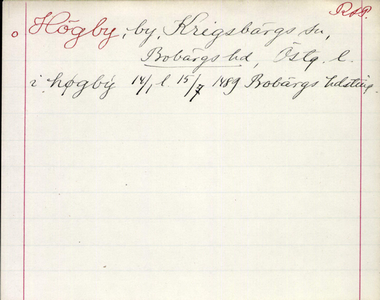 RAP.
o Högby, by, Krigsbärgs sn,
Bobärgs hd, Östg. l.
i høgby 14/1 l. 15/7 1489 Bobärgs hdsting.